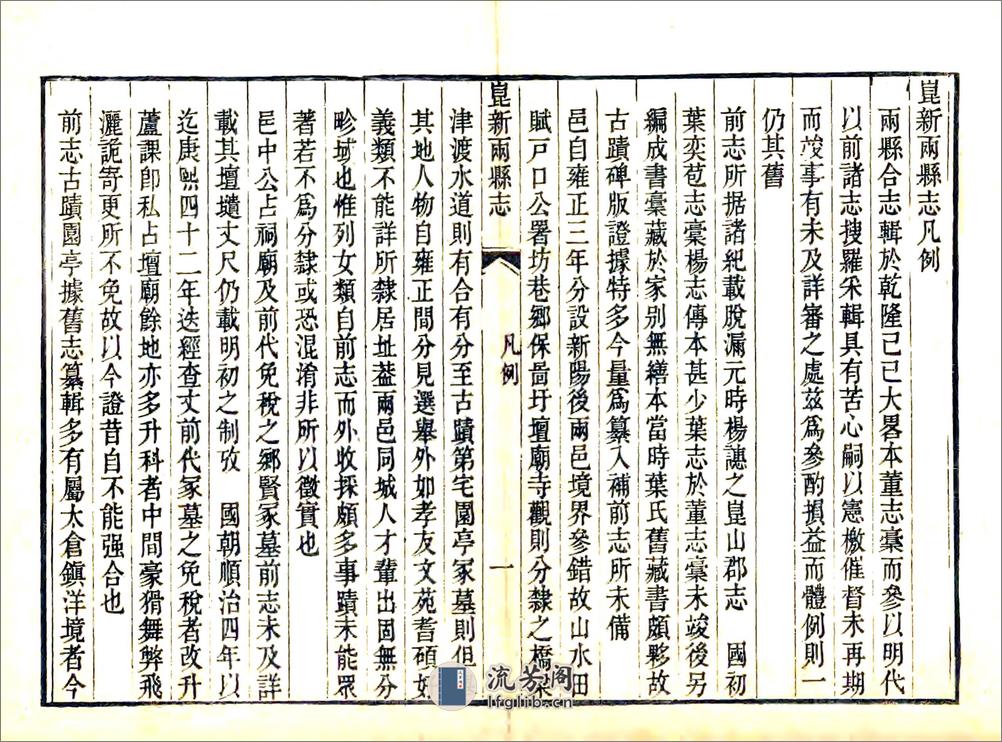 崑新兩縣志凡例
兩縣合志輯於乾隆己巳大畧本董志稾而參以明代
以前諸志搜羅采輯具有苦心嗣以憲檄催督未再期
而竣事有未及詳審之處茲爲參酌損益而體例則一
仍其舊
前志所据諸紀載脫漏元時楊譓之崑山郡志　國初
葉奕苞志稾楊志傳本甚少葉志於董志稾未竣後另
編成書稾藏於家别無繕本當時葉氏舊藏書頗夥故
古蹟碑版證據特多今量爲纂入補前志所未備
邑自雍正三年分設新陽後兩邑境界參錯故山水田
賦戸口公署坊巷鄉保啚圩壇廟寺觀則分隸之橋梁
崑新兩縣志
凡例
一
津渡水道則有合有分至古蹟第宅園亭冢墓則但
其地人物自雍正間分見選舉外如孝友文苑耆碩
義類不能詳所隸居址葢兩邑同城人才輩出固無分
畛域也惟列女類自前志而外收採頗多事蹟未能眾
著若不爲分隸或恐混淆非所以徵實也
邑中公占祠廟及前代免稅之鄉賢冢墓前志未及詳
載其壇壝丈尺仍載明初之制攷　國朝順治四年以
迄康熙四十二年迭經查丈前代冢墓之免稅者改升
蘆課卽私占壇廟餘地亦多升科者中間豪猾舞弊飛
灑詭寄更所不免故以今證昔自不能强合也
前志古蹟園亭據舊志纂輯多有屬太倉鎮洋境者今
流芳阁
lfglib.cn